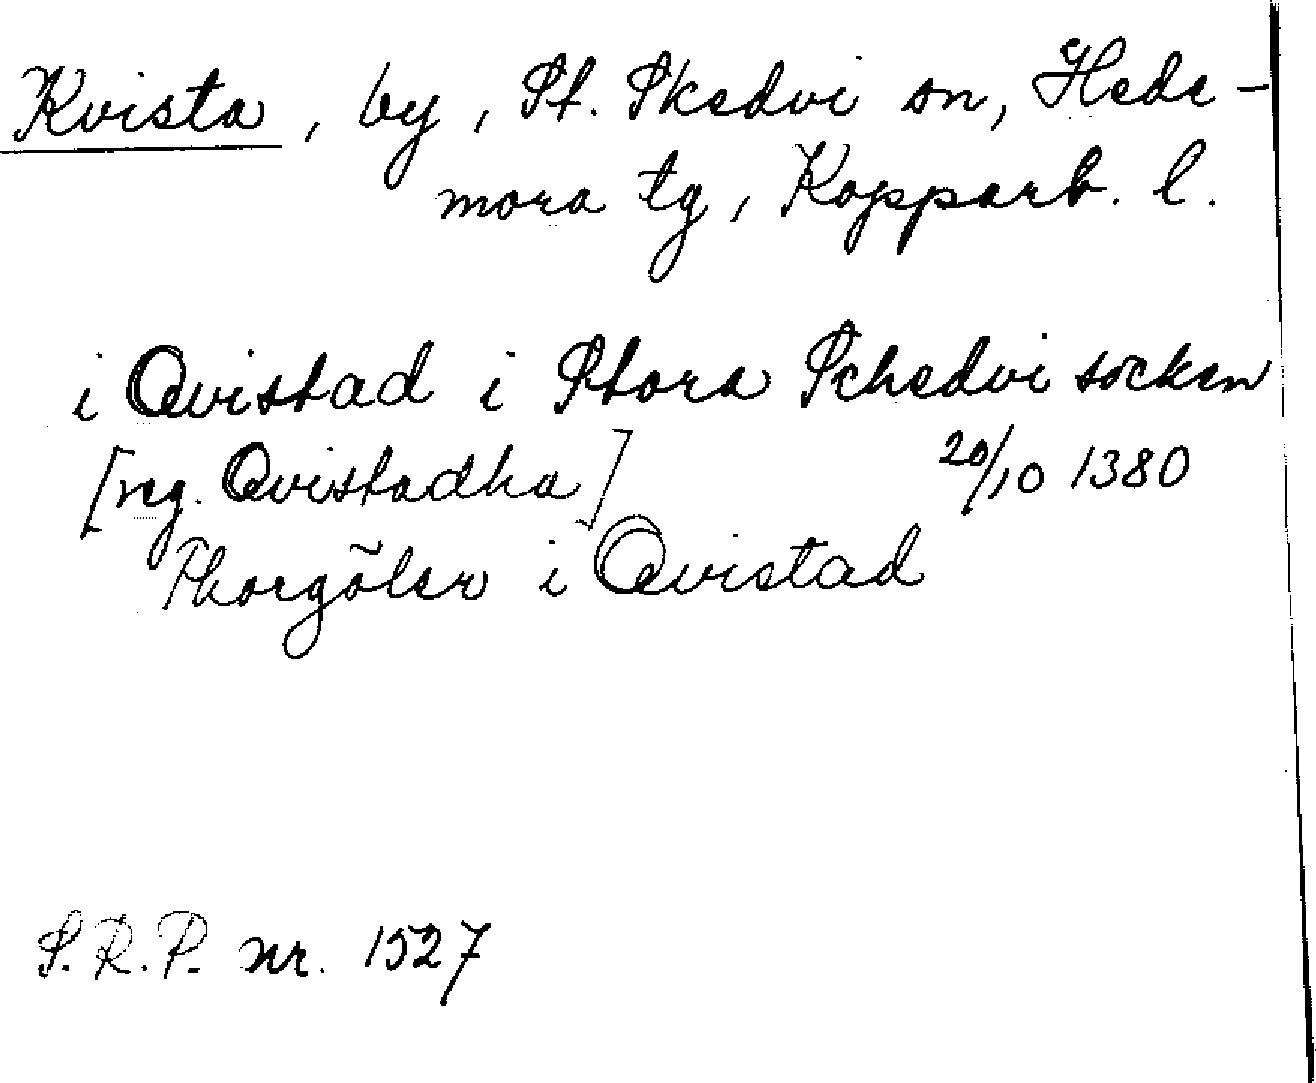 Kvista, by, St. Skedvi sn, Hede-
mora tg, Kopparb. l.
i Qvistad i Stora Schedvi socken
[reg. Qvistadha] 20/10 1380
Thorgölser i Qvistad
S.R.P. nr. 1527